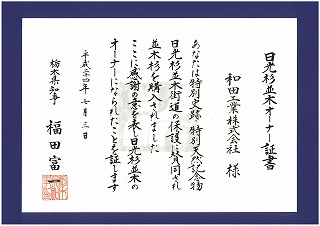 日光杉並木オーナー証書
和田工業株式会社 様
あなたは特別史跡 特別天然記念物
日光杉並木街道の保護に賛同され
並木杉を購入されました
ここに感謝の意を表し日光杉並木の
オーナーになられたことを証します
平成二十四年七月三日
栃木県知事 福田富一